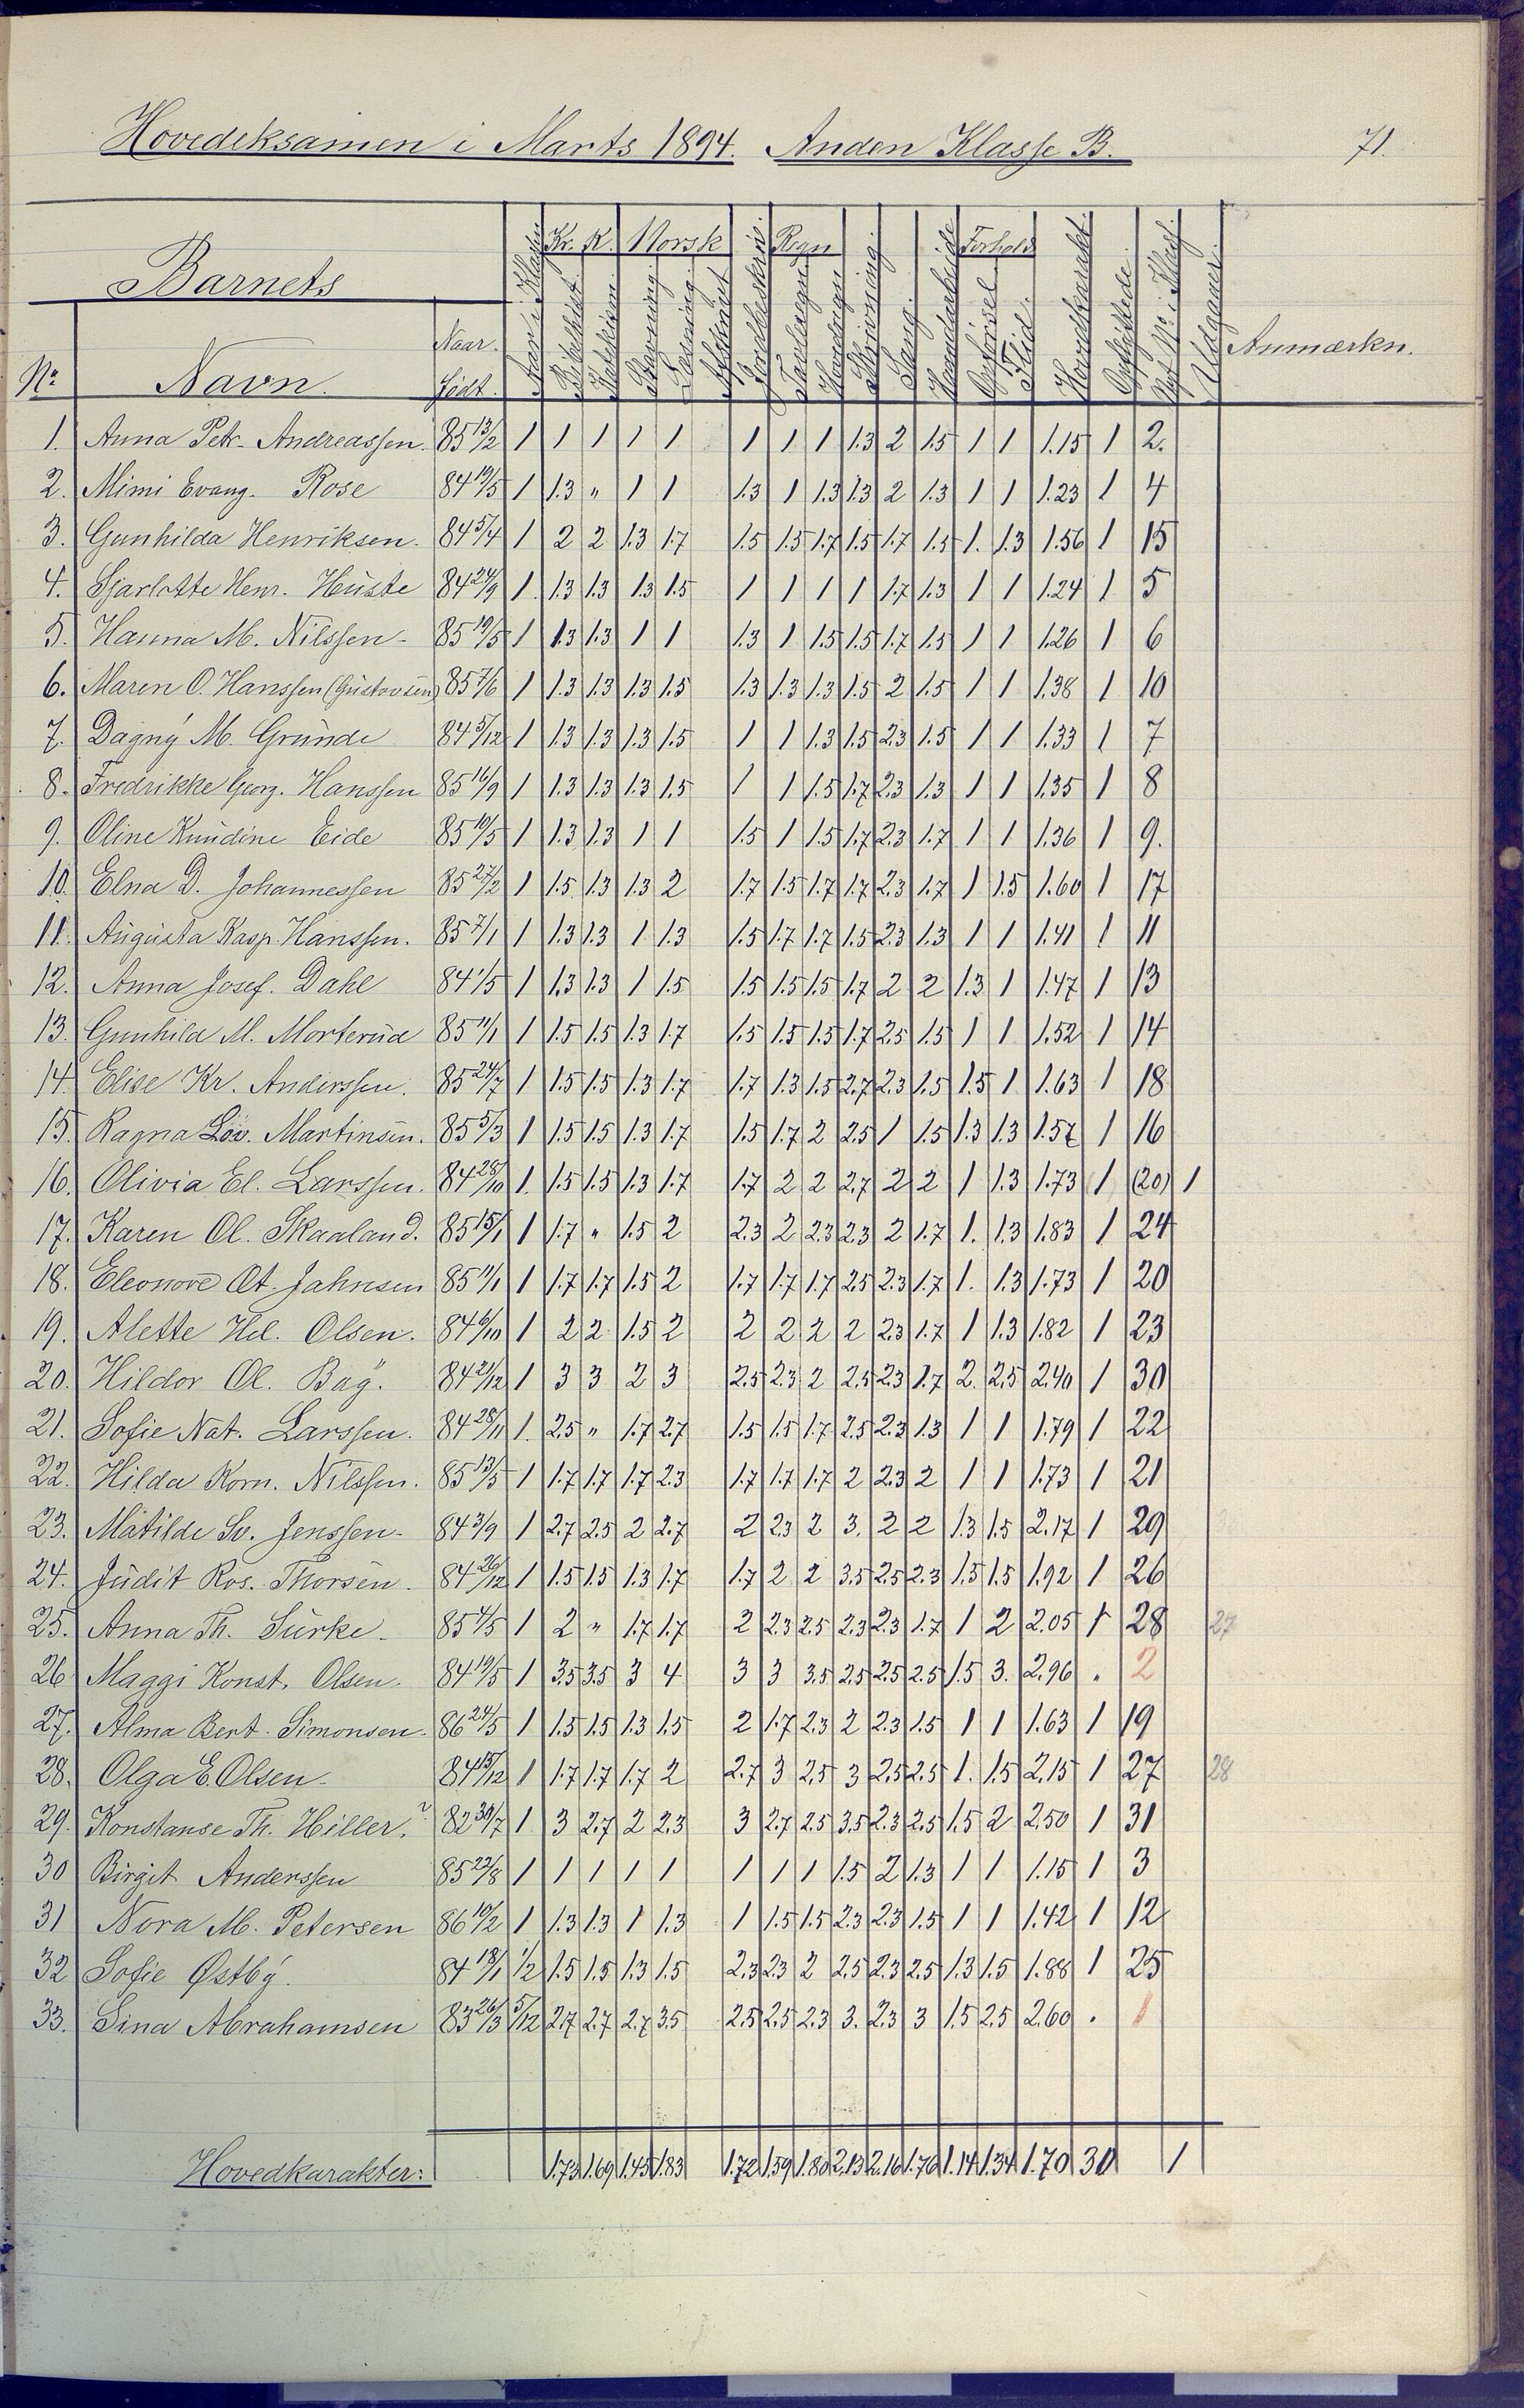 Hovedeksamen i Marts 1894. Anden Klasse B. 71.
Kr. K. Norsk Regn Forhold
Barnets
Aar i Klassen Bibelhist. Katekism. Stavning Læsning Afskrivt Jordbeskriv. Tavleregn Hovedregn Skrivning Sang. Haandarbeide Opførsel Flid. Hovedkarakt. Opflyttede Nyt No. i Klas. Udgaaet. Anmærkn.
No. Navn. Naar Født.
1. Anna Petr. Andreassen. 85 13/2 1 1 1 1 1 1 1 1 1.3 2 1.5 1 1 1.15 1 2.
2. Mimi Evang. Rose 84 19/5 1 1.3 " 1 1 1.3 1 1.3 1.3 2 1.3 1 1 1.23 1 4
3. Gunhilda Henriksen. 84 5/4 1 2 2 1.3 1.7 1.5 1.5 1.7 1.5 1.7 1.5 1. 1.3 1.56 1 15
4. Sjarlotte Henr. Huste 84 24/9 1. 1.3 1.3 1.3 1.5 1 1 1 1 1.7 1.3 1 1 1.24 1 5
5. Hanna M. Nilssen. 85 19/5 1 1.3 1.3 1 1 1.3 1 1.5 1.5 1.7 1.5 1 1 1.26 1 6
6. Maren O. Hanssen (Gustavsen) 85 7/6 1 1.3 1.3 1.3 1.5 1.3 1.3 1.3 1.5 2 1.5 1 1 1.38 1 10
7. Dagny M. Grunde 84 5/12 1 1.3 1.3 1.3 1.5 1 1 1.3 1.5 2.3 1.5 1 1 1.33 1 7
8. Fredrikke Georg. Hanssen 85 16/9 1 1.3 1.3 1.3 1.5 1 1 1.5 1.7 2.3 1.3 1 1 1.35 1 8
9. Oline Knudine Eide 85 10/5 1 1.3 1.3 1 1 1.5 1 1.5 1.7 2.3 1.7 1 1 1.36 1 9.
10. Elna D. Johannessen 85 27/2 1 1.5 1.3 1.3 2 1.7 1.5 1.7 1.7 2.3 1.7 1 1.5 1.60 1 17
11. Augusta Kasp. Hanssen. 85 7/1 1 1.3 1.3 1 1.3 1.5 1.7 1.7 1.5 2.3 1.3 1 1 1.41 1 11
12. Anna Josef. Dahl 84 1/5 1 1.3 1.3 1 1.5 1.5 1.5 1.5 1.7 2 2 1.3 1 1.47 1 13
13. Gunhild M. Morterud 85 11/1 1 1.5 1.5 1.3 1.7 1.5 1.5 1.5 1.7 2.5 1.5 1 1 1.52 1 14
14. Elise Kr. Anderssen. 85 24/7 1 1.5 1.5 1.3 1.7 1.7 1.3 1.5 2.7 2.3 1.5 1.5 1 1.63 1 18
15. Ragna Lov. Martinsen. 85 5/3 1 1.5 1.5 1.3 1.7 1.5 1.7 2 2.5 1 1.5 1.3 1.3 1.57 1 16
16. Olivia El. Larssen. 84 28/10 1. 1.5 1.5 1.3 1.7 1.7 2 2 2.7 2 2 1 1.3 1.73 1 (20) 1
17. Karen Ol. Skaaland. 85 15/1 1 1.7 " 1.5 2 2.3 2 2.3 2.3 2 1.7 1. 1.3 1.83 1 24
18. Eleonore Ot. Jahnsen 85 11/1 1 1.7 1.7 1.5 2 1.7 1.7 1.7 2.5 2.3 1.7 1. 1.3 1.73 1 20
19. Alette Hel. Olsen. 84 6/10 1 2 2 1.5 2 2 2 2 2 2.3 1.7 1 1.3 1.82 1 23
20. Hildor Ol. Bag. 84 21/12 1 3 3 2 3 2.5 2.3 2 2.5 2.3 1.7 2. 2.5 2.40 1 30
21. Sofie Nat. Larssen. 84 28/11 1. 2.5 " 1.7 2.7 1.5 1.5 1.7 2.5 2.3 1.3 1 1 1.79 1 22
22. Hilda Korn. Nilssen. 85 13/5 1 1.7 1.7 1.7 2.3 1.7 1.7 1.7 2 2.3 2 1 1 1.73 1 21
23. Matilde Sv. Jenssen. 84 3/9 1 2.7 2.5 2 2.7 2 2.3 2 3. 2 2 1.3 1.5 2.17 1 29
24. Judit Ros. Thorsen. 84 26/12 1 1.5 1.5 1.3 1.7 1.7 2 2 3.5 2.5 2.3 1.5 1.5 1.92 1 26
25. Anna Th. Surke. 85 4/5 1 2 " 1.7 1.7 2 2.3 2.5 2.3 2.3 1.7 1 2 2.05 1 28 27
26 Maggi Konst. Olsen. 84 19/5 1 3.5 3.5 3 4 3 3 3.5 2.5 2.5 2.5 1.5 3. 2.96 " 2
27. Alma Bert. Simonsen. 86 24/5 1 1.5 1.5 1.3 1.5 2 1.7 2.3 2 2.3 1.5 1 1 1.63 1 19
28. Olga E. Olsen. 84 15/12 1 1.7 1.7 1.7 2 2.7 3 2.5 3 2.5 2.5 1. 1.5 2.15 1 27 28
29. Konstanse Th. Hiller. ? 82 30/7 1. 3 2.7 2 2.3 3 2.7 2.5 3.5 2.3 2.5 1.5 2 2.50 1 31
30 Birgit Anderssen 85 22/8 1 1 1 1 1 1 1 1 1.5 2 1.3 1 1 1.15 1 3
31 Nora M. Petersen 86 10/2 1 1.3 1.3 1 1.3 1 1.5 1.5 2.3 2.3 1.5 1 1 1.42 1 12
32 Sofie Østby. 84 18/1 1/2 1.5 1.5 1.3 1.5 2.3 2.3 2 2.5 2.3 2.5 1.3 1.5 1.88 1 25
33. Sina Abrahamsen 83 26/3 5/12 2.7 2.7 2.7 3.5 2.5 2.5 2.3 3. 2.3 3 1.5 2.5 2.60 . 1
Hovedkarakter: 1.73 1.69 1.45 1.83 1.72 1.59 1.80 2.13 2.16 1.76 1.14 1.34 1.70 30 1